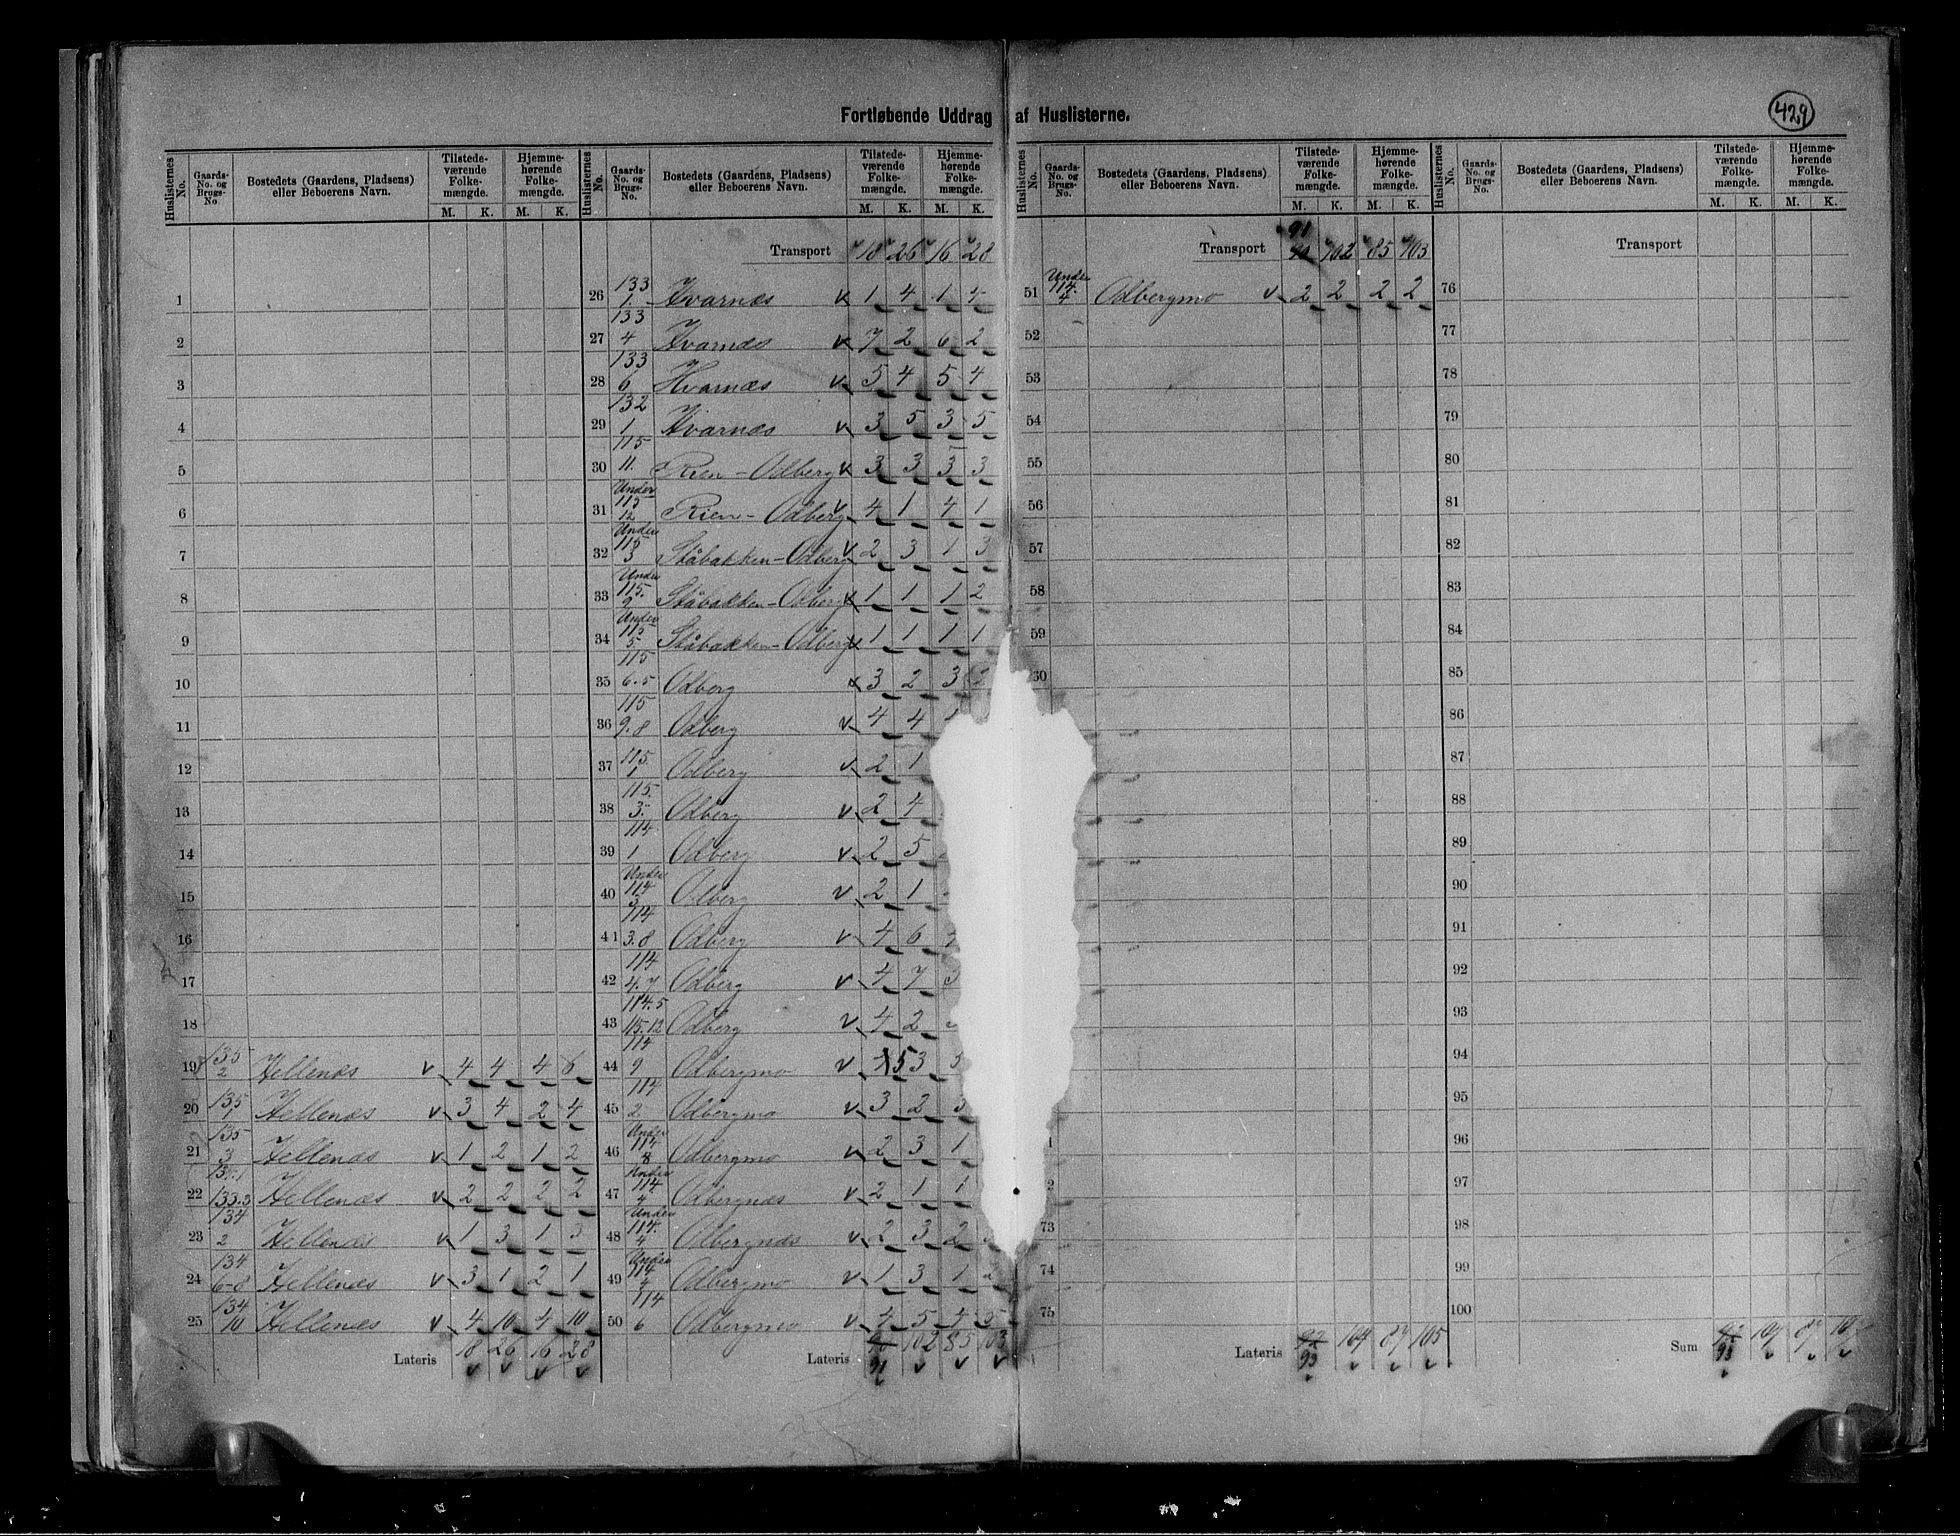 Fortløbende Uddrag af Huslisterne.
429
Huslisternes No. Gaards-No. og Brugs-No. Bostedets (Gaardens, Pladsens) eller Beboerens Navn. Tilstedeværende Folkemængde. M. K. Hjemmehørende Folkemængde. M. K.
Huslisternes No. Gaards-No. og Brugs-No. Bostedets (Gaardens, Pladsens) eller Beboerens Navn. Tilstedeværende Folkemængde. M. K. Hjemmehørende Folkemængde. M. K.
Huslisternes No. Gaards-No. og Brugs-No. Bostedets (Gaardens, Pladsens) eller Beboerens Navn. Tilstedeværende Folkemængde. M. K. Hjemmehørende Folkemængde. M. K.
Huslisternes No. Gaards-No. og Brugs-No. Bostedets (Gaardens, Pladsens) eller Beboerens Navn. Tilstedeværende Folkemængde. M. K. Hjemmehørende Folkemængde. M. K.
1
2
3
4
5
6
7
8
9
10
11
12
13
14
15
16
17
18
19 135/2 Hellenæs v 4 4 4 6
20 135/1 Hellenæs v 3 4 2 4
21 135/3 Hellenæs v 1 2 1 2
22 133.3 Hellenæs v 2 2 2 2
23 134/2 Hellenæs v 1 3 1 3
24 134/6-8 Hellenæs v 3 1 2 1
25 134/10 Hellenæs v 4 10 4 10
Lateris 18 26 16 28
Transport 18 26 16 28
26 133/1. Hvarnæs 1 4 1 4
27 133/4 Hvarnæs 7 2 6 2
28 133/6 Hvarnæs v 5 4 5 4
29 132/1 Hvarnæs v 3 5 3 5
30 115/11. Rien-Odberg 3 3 3 3
31 Under 115/12 Rien-Odberg v 4 1 4 1
32 Under 115/3 Ståbakken-Odberg v 2 3 1 3
33 Under 115/9 Ståbakken-Odberg 1 1 1 2
34 Under 115/5 Ståbakken-Odberg 1 1 1 1
35 115/6.5 Odberg 3 2 3 2
36 115/9.8 Odberg v 4 4
37 115/1 Odberg v 2 1
38 115/3. Odberg v 2 4
39 114/1 Odberg v 2 5
40 Under 114/3 Odberg v 2 1
41 114/3.8 Odberg v 4 6
42 114/4.7 Odberg v 4 7 3
43 114.5 115.12 Odberg v 4 2
44 114/9 Odbergmo v 5 3 3
45 114/2 Odbergmo v 3 2 3
46 Under 114/8 Odbergmo v 2 3 1
47 Under 114/4 Odbergnæs v 2 1 1
48 Under 114/4 Odbergnæs v 2 3 2
49 Under 114/4 Odbergmo v 1 3 1 2
50 114/6 Odbergmo v 4 5 4 5
Lateris 90 102 85 103
91
91
Transport 90 102 85 103
51 Under 114/4 Odbergmo v 2 2 2 2
52
53
54
55
56
57
58
59
60
73
74
75
Lateris 92 104 87 105
93
Transport
76
77
78
79
80
81
82
83
84
85
86
87
88
89
90
91
92
93
94
95
96
97
98
99
100
Sum 92 104 87 105
93